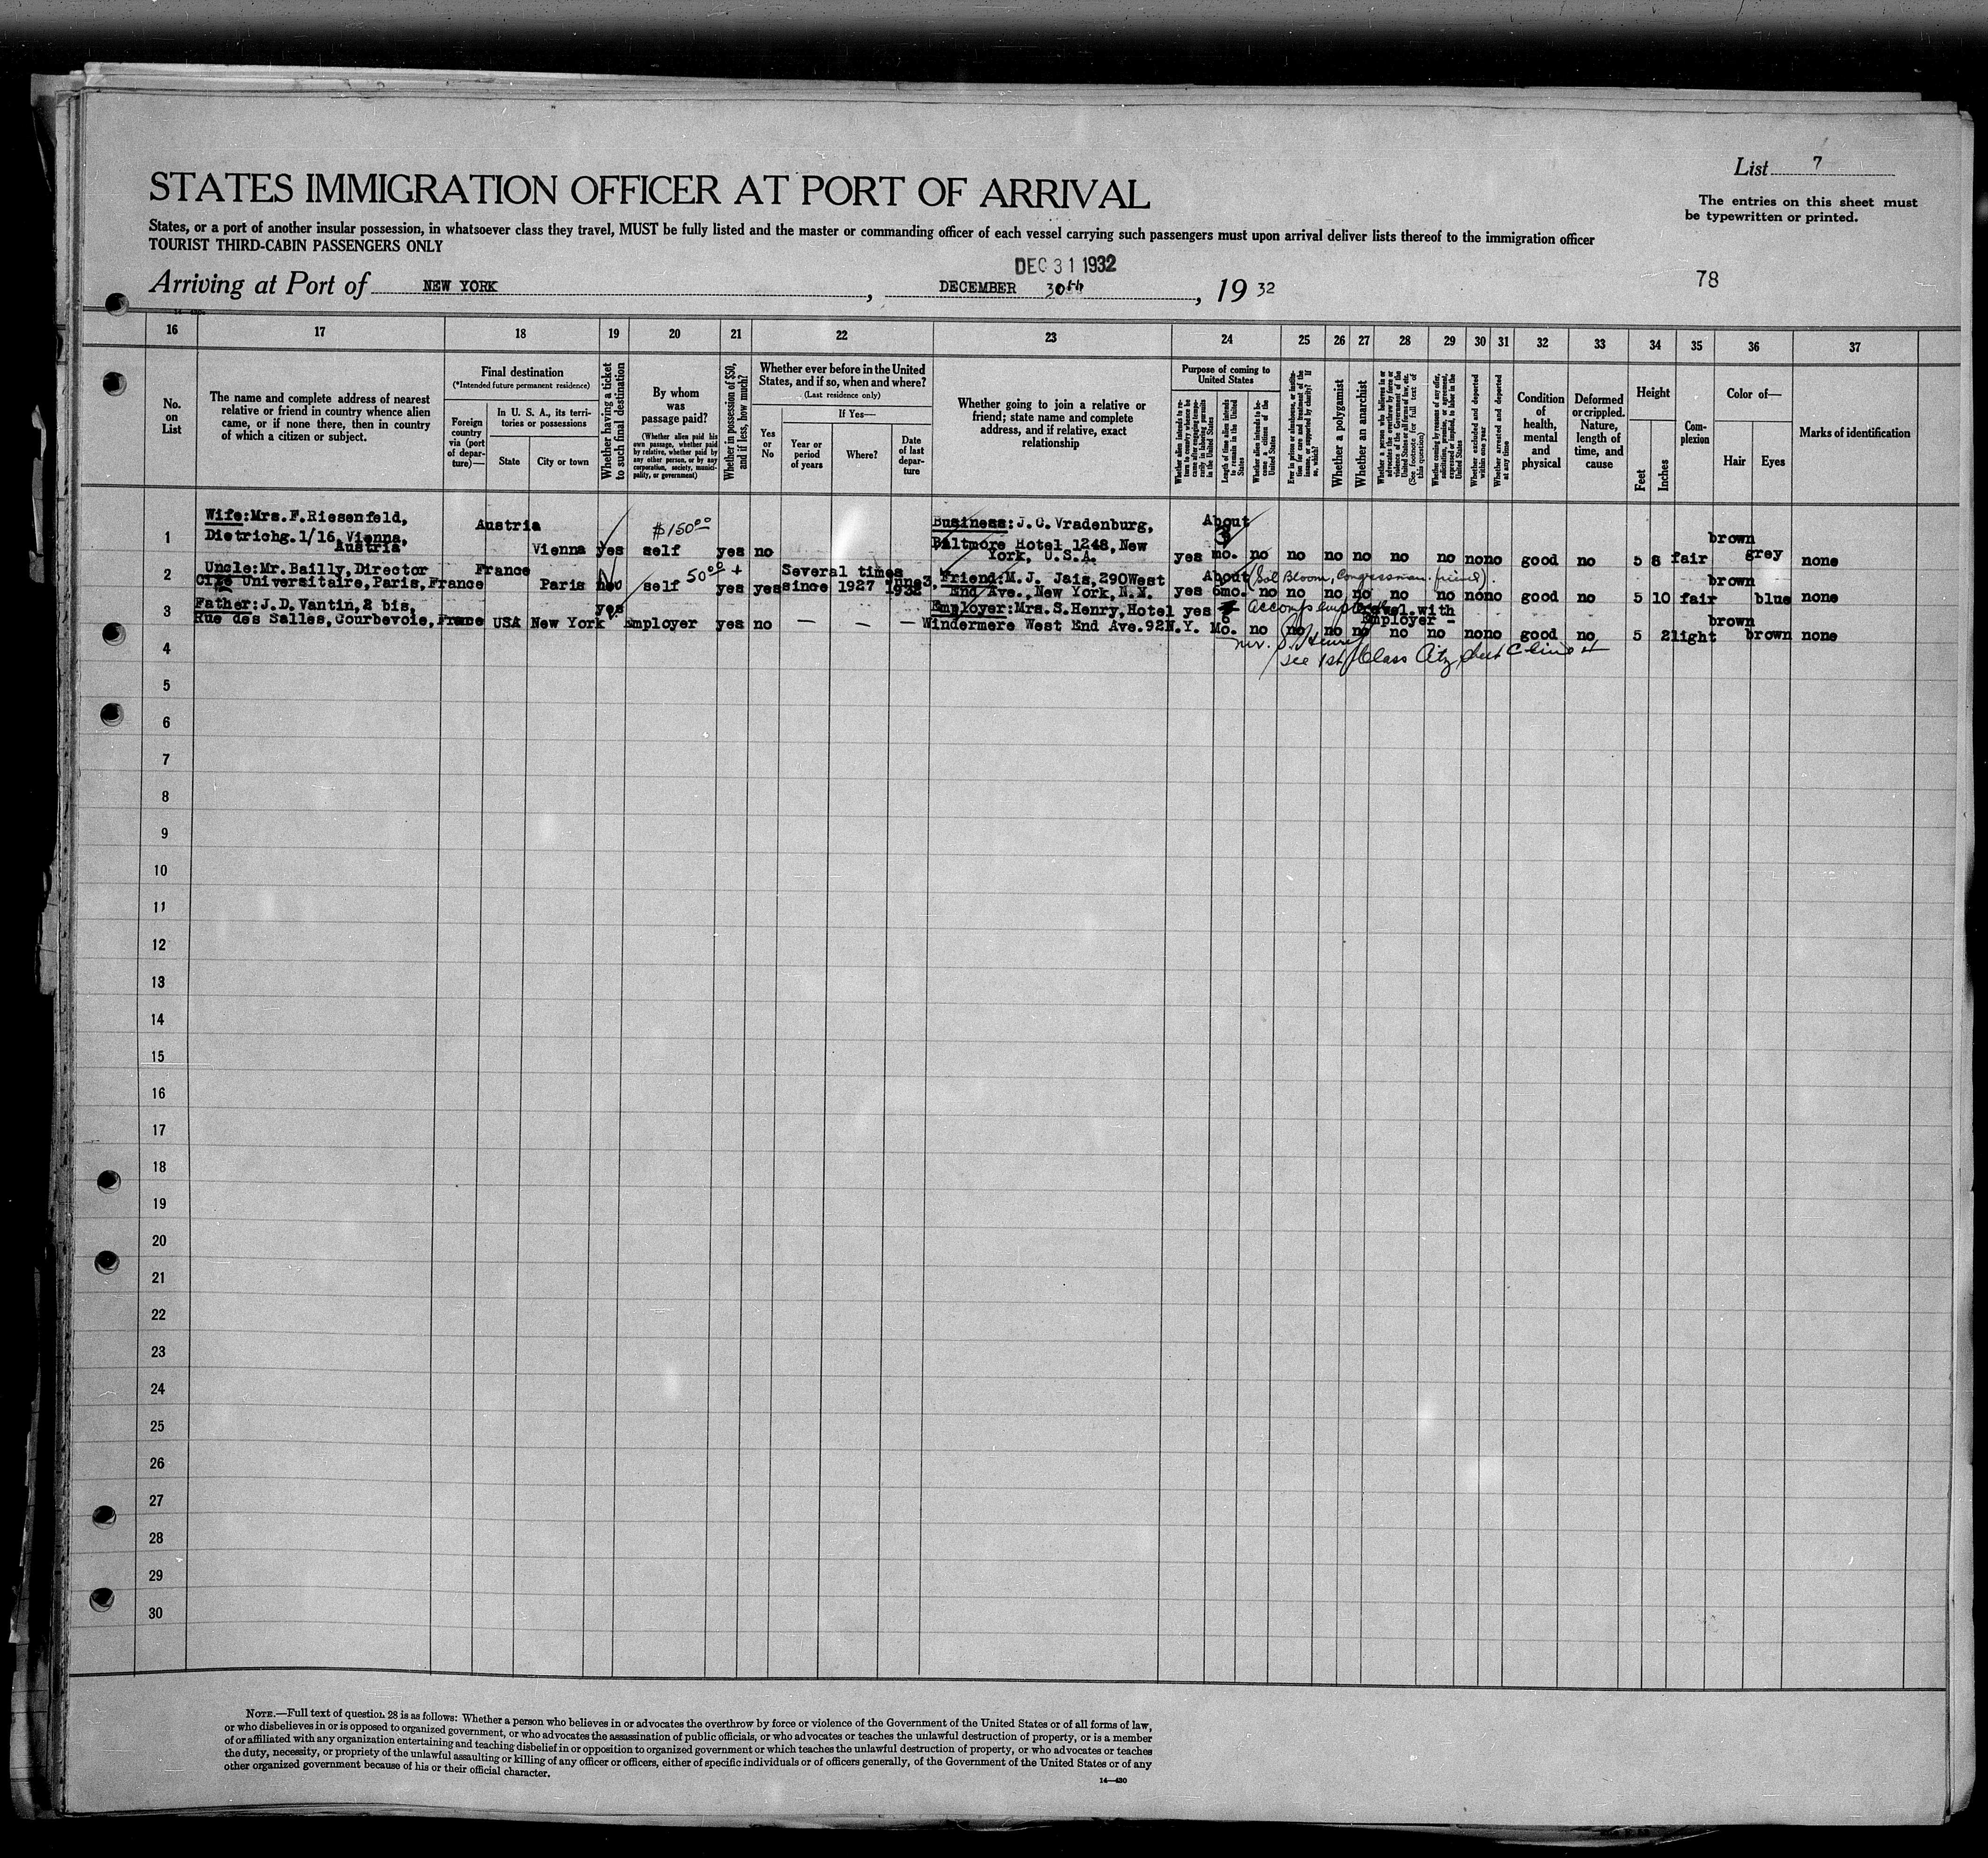 List 7
STATES IMMIGRATION OFFICER AT PORT OF ARRIVAL
The entries on this sheet must
be typewritten or printed.
States, or a port of another insular possession, in whatsoever class they travel, MUST be fully listed and the master or commanding officer of each vessel carrying such passengers must upon arrival deliver lists thereof to the immigration officer
TOURIST THIRD-CABIN PASSENGERS ONLY
DEC 31 1932
Arriving at Port of NEW YORK, DECEMBER 30th, 1932
78
16 17 18 19 20 21 22 23 24 25 26 27 28 29 30 31 32 33 34 35 36 37
No. on List
The name and complete address of nearest relative or friend in country whence alien came, or if none there, then in country of which a citizen or subject.
Final destination
(*Intended future permanent residence)
Foreign country via (port of departure)—
In U. S. A., its territories or possessions
State
City or town
Whether having a ticket to such final destination
By whom was passage paid?
(Whether alien paid his own passage, whether paid by relative, whether paid by any other person, or by any corporation, society, municipality, or government)
Whether in possession of $50, and if less, how much?
Whether ever before in the United States, and if so, when and where?
(Last residence only)
Yes or No
If Yes—
Year or period of years
Where?
Date of last departure
Whether going to join a relative or friend; state name and complete address, and if relative, exact relationship
Purpose of coming to United States
Whether alien intends to return to country whence he came after engaging temporarily in laboring pursuits in the United States
Length of time alien intends to remain in the United States
Whether alien intends to become a citizen of the United States
Ever in prison or almshouse, or institution for care and treatment of the insane, or supported by charity? If so, which?
Whether a polygamist
Whether an anarchist
Whether a person who believes in or advocates the overthrow by force or violence of the Government of the United States or all forms of law, etc. (See footnote for full text of this question)
Whether coming by reason of any offer, solicitation, promise, or agreement, expressed or implied, to labor in the United States
Whether excluded and deported within one year
Whether arrested and deported at any time
Condition of health, mental and physical
Deformed or crippled. Nature, length of time, and cause
Height
Feet
Inches
Complexion
Color of—
Hair
Eyes
Marks of identification
1 Wife:Mrs.F.Riesenfeld,
Dietrichg.1/16,Vienna,
Austria
Austria Vienna yes $150.00 self yes no
Business:J.C.Vradenburg,
Biltmore Hotel 1248,New
York, U.S.A.
yes About 3 mo. no no no no no no no no good no 5 8 fair brown grey none
2 Uncle:Mr.Bailly,Director
Cité Universitaire,Paris,France
France Paris self 50.00 + yes yes Several times
since 1927 June3, 1932
Friend:M.J. Jais,290West
End Ave.,New York,N.Y.
(Sol Bloom, Congressman. friend).
yes About 6mo. no no no no no no no no good no 5 10 fair brown blue none
3 Father:J.D.Vantin,2 bis,
Rue des Salles,Courbevoie,France
USA New York yes Employer yes no — — —
Employer:Mrs.S.Henry,Hotel
Windermere West End Ave.92N.Y.
yes 6 Mo. no no no no no no no no good no 5 2 light brown brown none
accomp employer
Travel.with
Employer -
mr. S. Henry
See 1st Class Citz sheet C line 4
4
5
6
7
8
9
10
11
12
13
14
15
16
17
18
19
20
21
22
23
24
25
26
27
28
29
30
NOTE.—Full text of question 28 is as follows: Whether a person who believes in or advocates the overthrow by force or violence of the Government of the United States or of all forms of law,
or who disbelieves in or is opposed to organized government, or who advocates the assassination of public officials, or who advocates or teaches the unlawful destruction of property, or is a member
of or affiliated with any organization entertaining and teaching disbelief in or opposition to organized government or which teaches the unlawful destruction of property, or who advocates or teaches
the duty, necessity, or propriety of the unlawful assaulting or killing of any officer or officers, either of specific individuals or of officers generally, of the Government of the United States or of any
other organized government because of his or their official character.
14—430